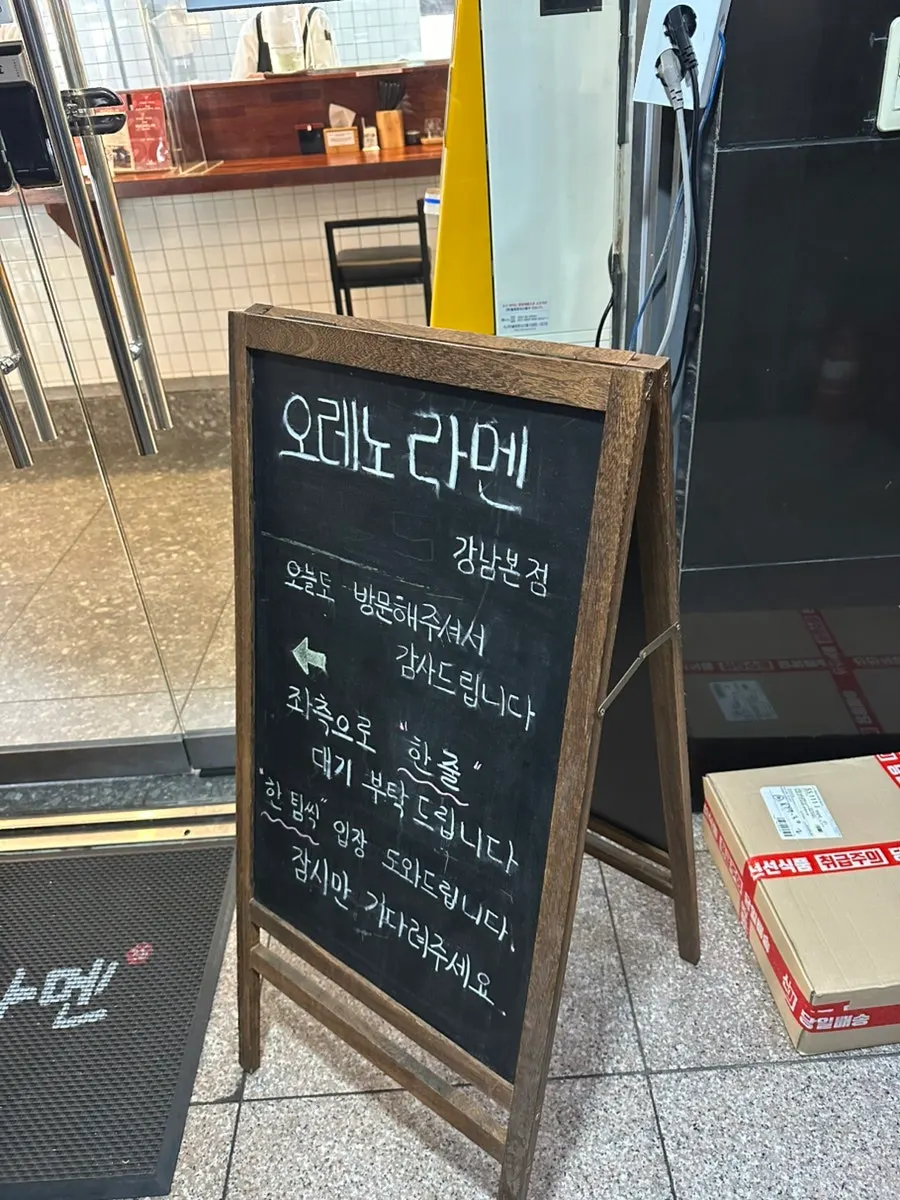 오레노 라멘
강남본점
오늘도 방문해주셔서
감사드립니다
좌측으로 "한 줄"
대기 부탁드립니다
"한 팀씩" 입장 도와드립니다.
잠시만 기다려주세요
라멘
선식품 취급주의
당일배송